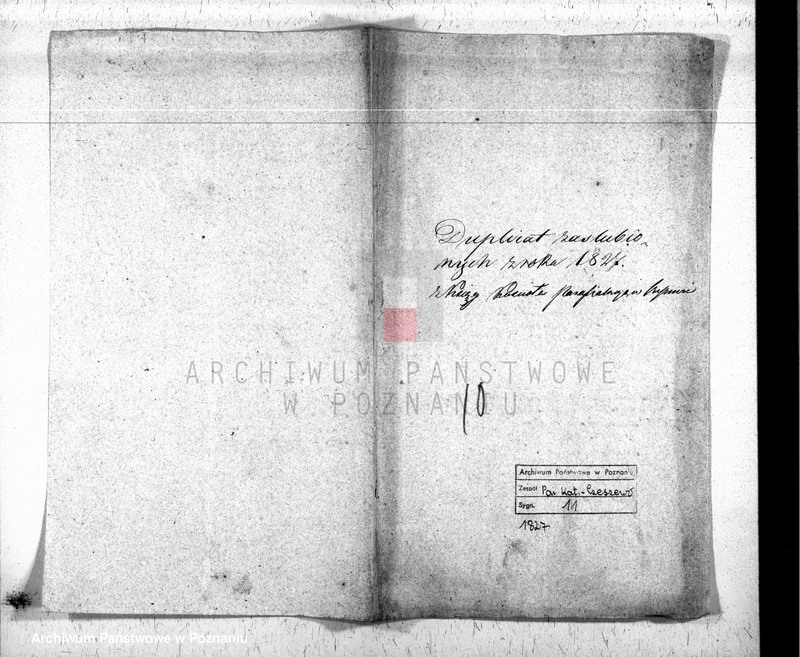 Duplicat zaslubio-
nych z roku 1827.
z Księgi Koscioła Parafialnego w
10
ARCHIWUM PAŃSTWOWE
W POZNANIU
Archiwum Państwowe w Poznaniu
Zespół Par. Kat. - Czeszewo
Sygn. 11
1827
Archiwum Państwowe w Poznaniu